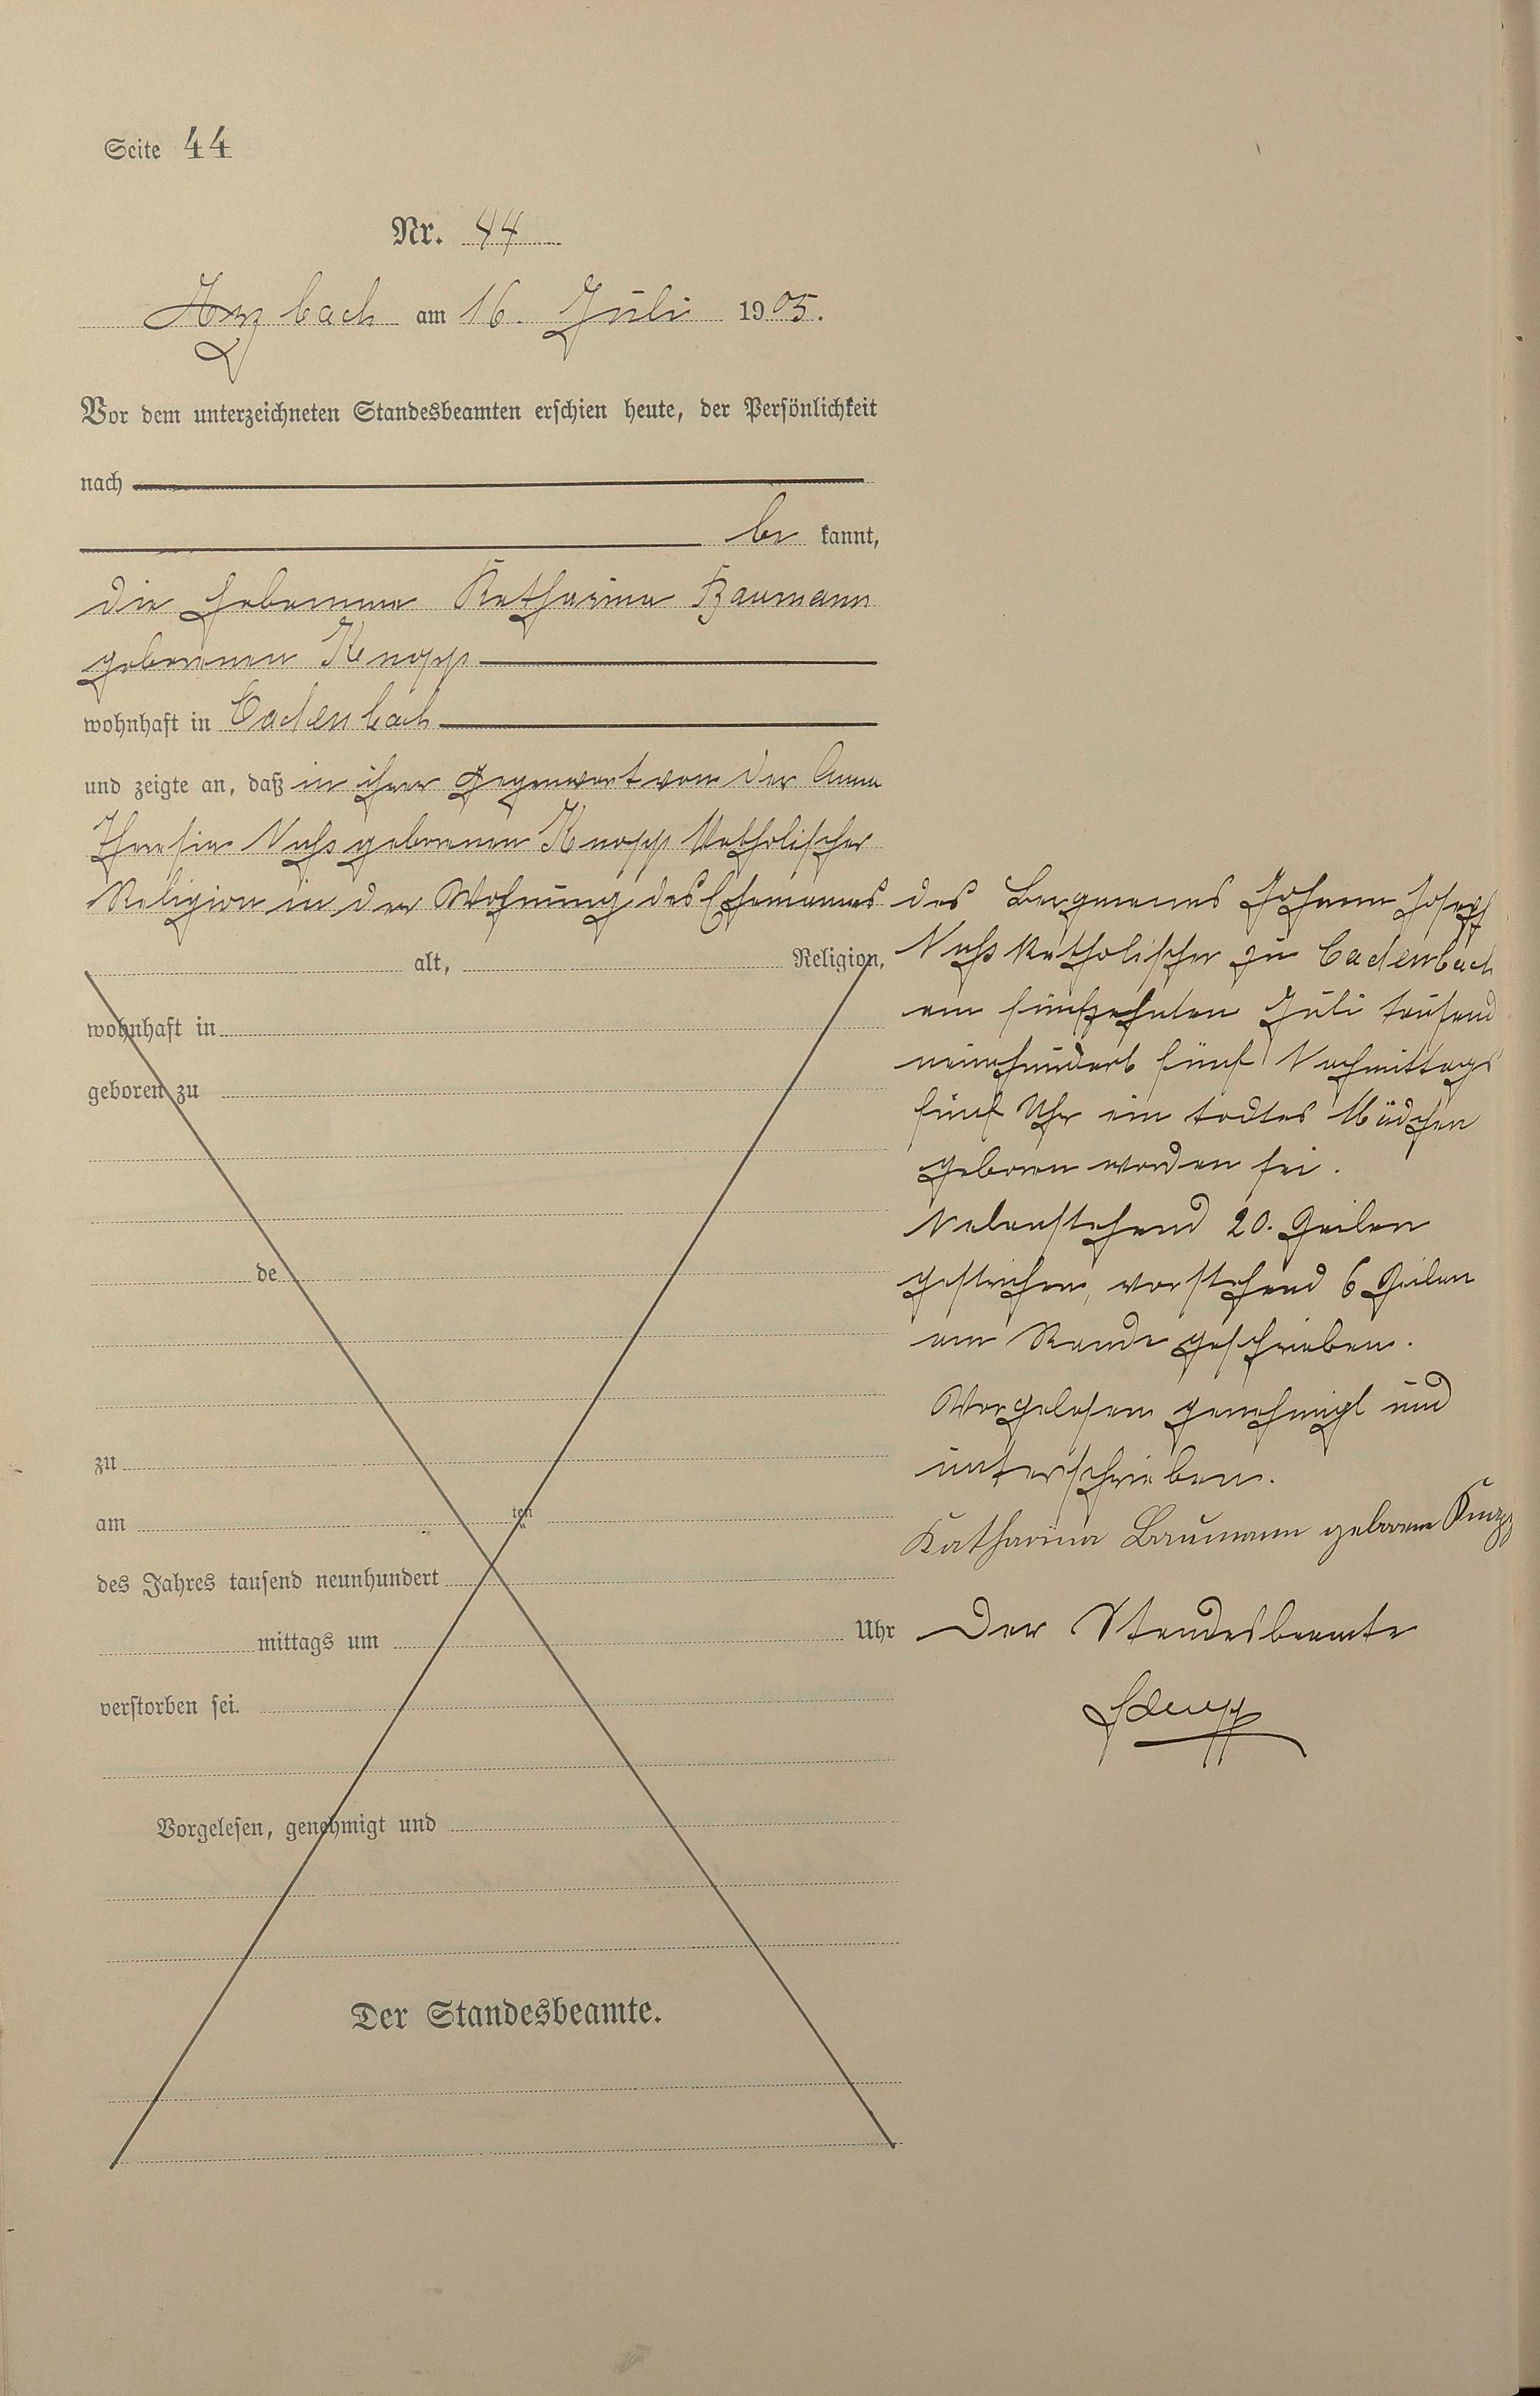 Seite 44
Nr. 44
Arzbach am 16. Juli 1905.
Vor dem unterzeichneten Standesbeamten erschien heute, der Persönlichkeit
nach
be kannt,
die Hebamme Katharina Baumann
geborenen Knopp
wohnhaft in Cadenbach
und zeigte an, daß in ihrer Gegenwart von der Anna
Theresia Nuß geborenen Knopp katholischer
Religion in der Wohnung des Ehemannes
alt, Religion,
wohnhaft in
geboren zu
de
zu
am ten
des Jahres tausend neunhundert
mittags um Uhr
verstorben sei.
Vorgelesen, genehmigt und
Der Standesbeamte.
des Bergmanns Johann Josef
Nuß katholischer zu Cadenbach
am fünfzehnten Juli tausend
neunhundert fünf Nachmittags
fünf Uhr ein todtes Mädchen
geboren worden sei.
Nebenstehend 20. Zeilen
gestrichen, vorstehend 6 Zeilen
am Rande geschrieben.
Vorgelesen genehmigt und
unterschrieben.
Katharina Baumann geborene Knopp
Der Standesbeamte